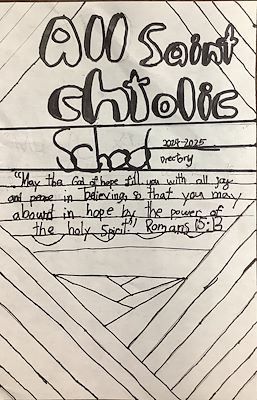 All Saint
chtolic
School
2024-2025
Directory
"May the God of hope fill you with all joy
and peace in believing, so that you may
abound in hope by the power of
the holy Spirit." Romans 15:13